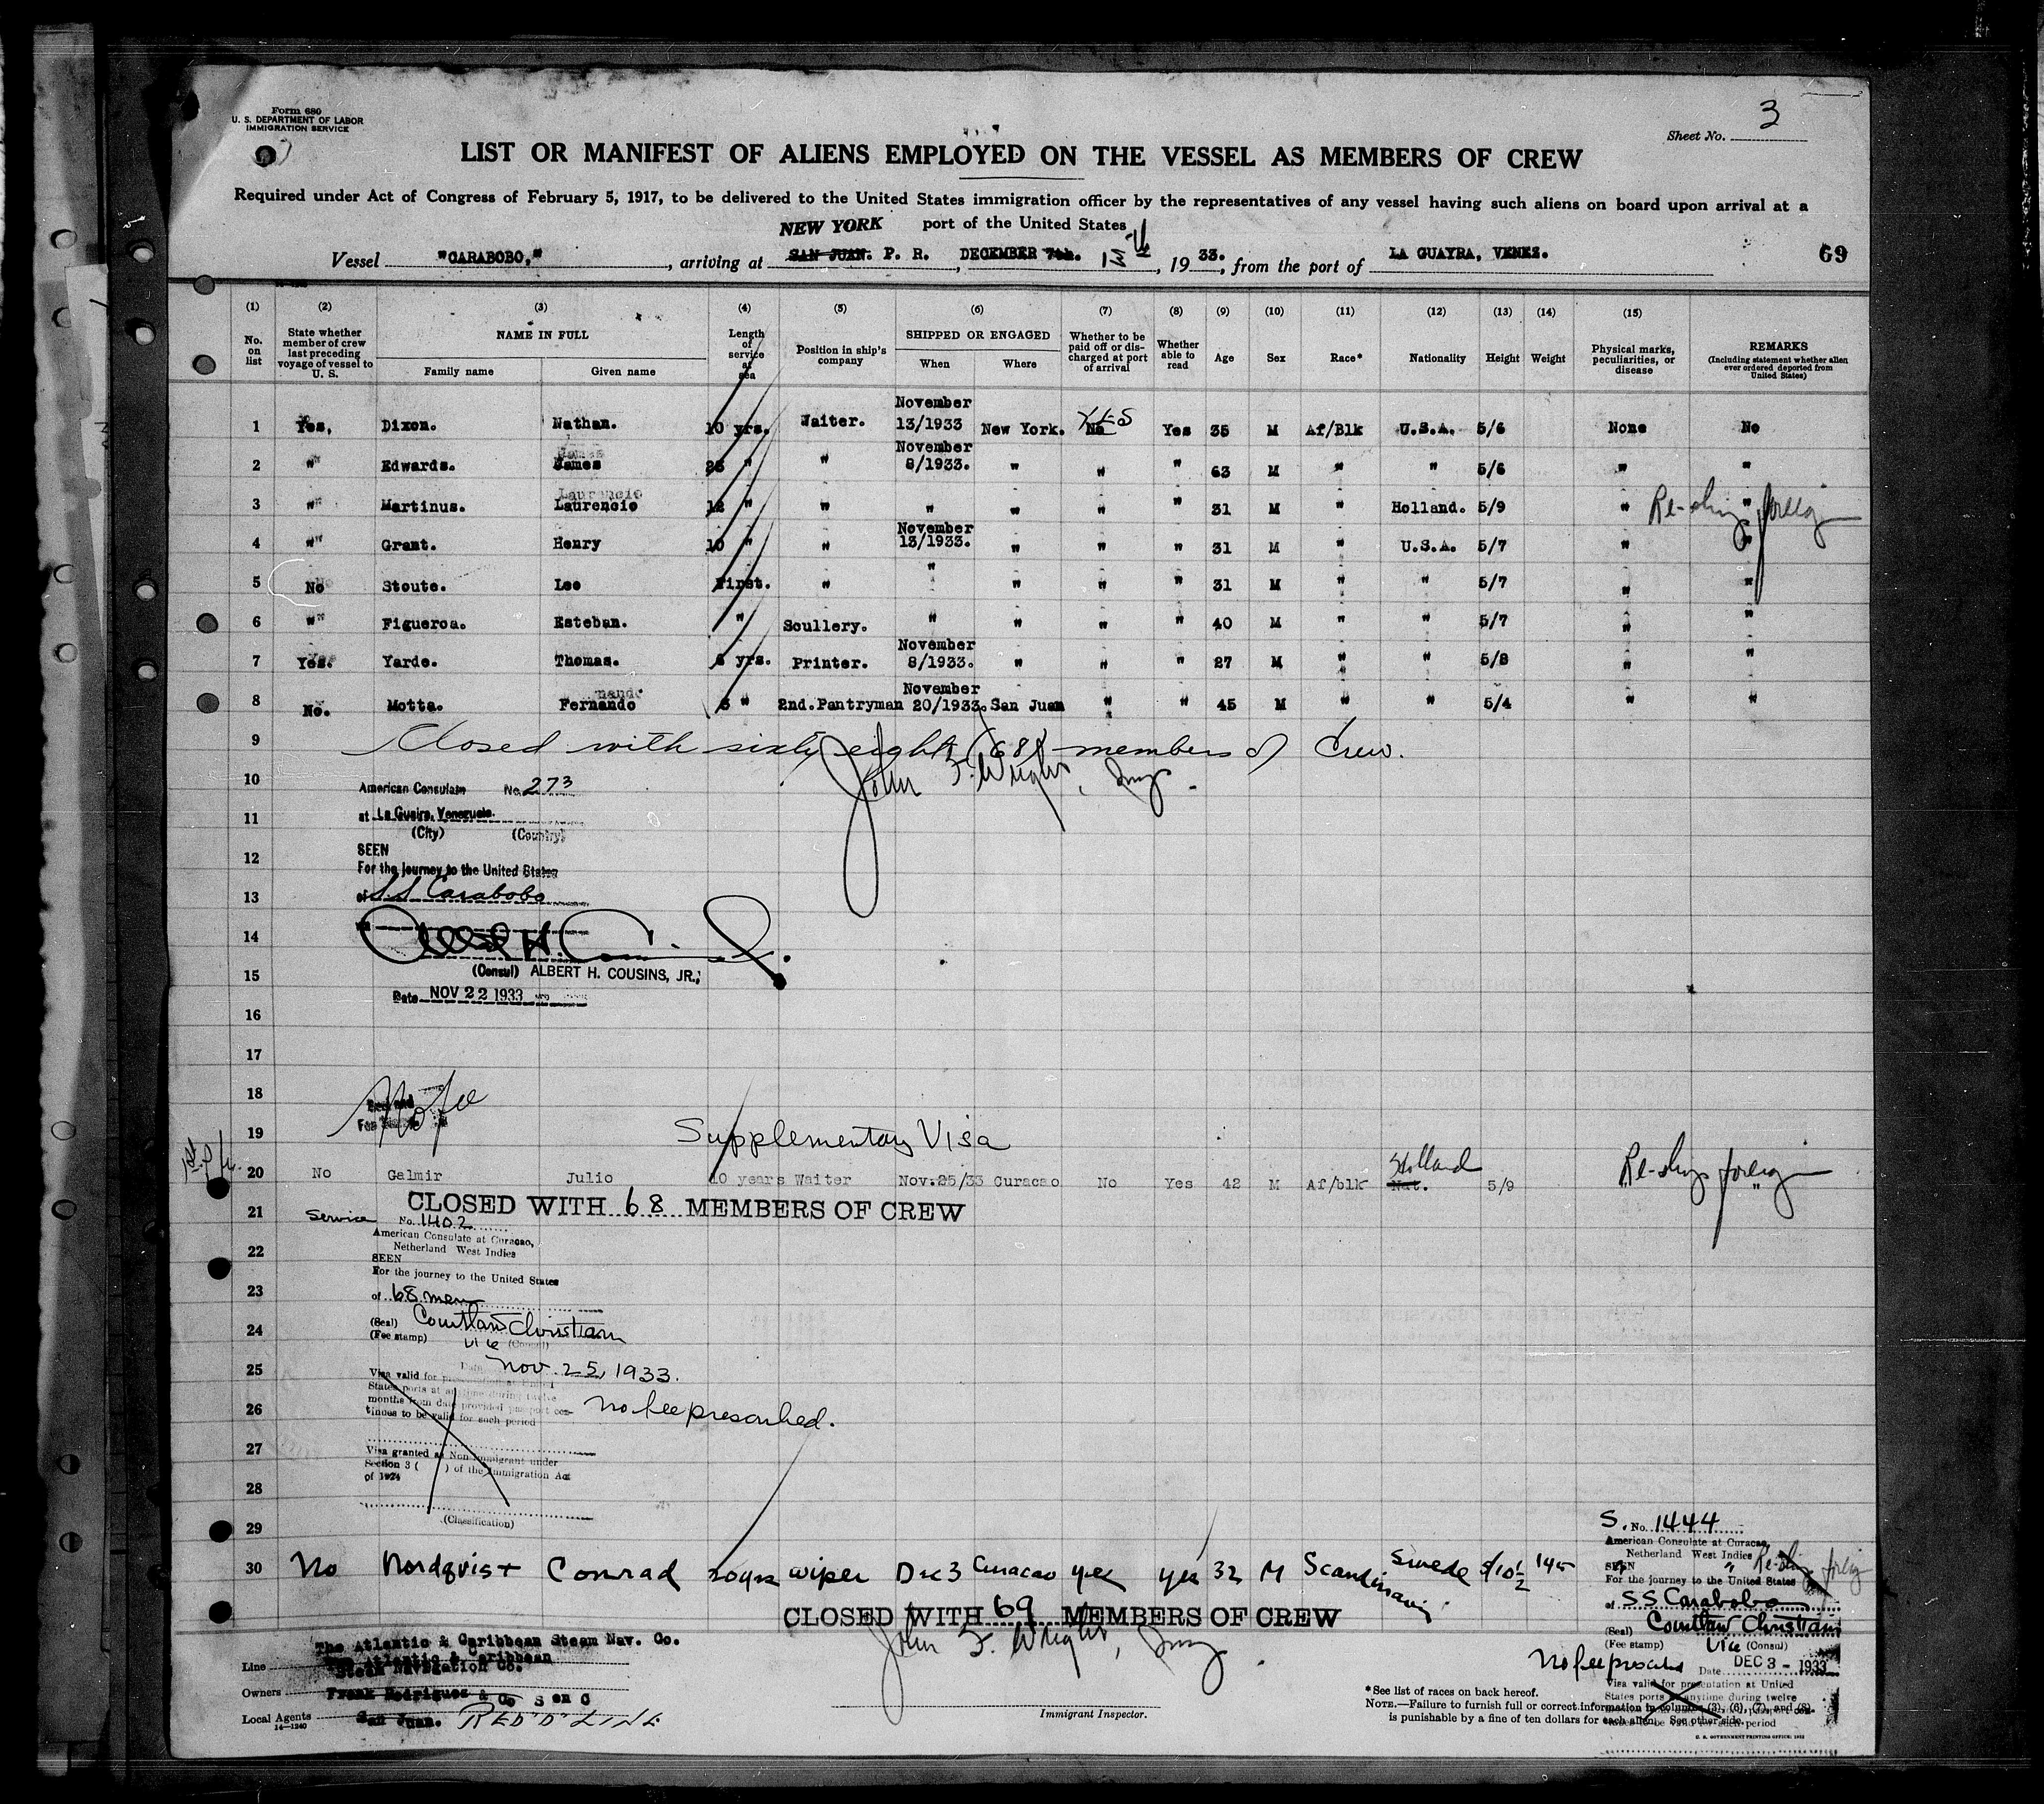 Form 680
U. S. DEPARTMENT OF LABOR
IMMIGRATION SERVICE
Sheet No. 3
LIST OR MANIFEST OF ALIENS EMPLOYED ON THE VESSEL AS MEMBERS OF CREW
Required under Act of Congress of February 5, 1917, to be delivered to the United States immigration officer by the representatives of any vessel having such aliens on board upon arrival at a
port of the United States
NEW YORK
Vessel "CARABOBO," , arriving at SAN JUAN. P. R. , DECEMBER 7th. , 19 33. , from the port of LA GUAYRA, VENEZ. 69
(1) (2) (3) (4) (5) (6) (7) (8) (9) (10) (11) (12) (13) (14) (15)
No. on list State whether member of crew last preceding voyage of vessel to U. S. NAME IN FULL Family name Given name Length of service at sea Position in ship's company SHIPPED OR ENGAGED When Where Whether to be paid off or discharged at port of arrival Whether able to read Age Sex Race* Nationality Height Weight Physical marks, peculiarities, or disease REMARKS (Including statement whether alien ever ordered deported from United States)
1 Yes, Dixon. Nathan. 10 yrs. Waiter. November 13/1933 New York. No YES Yes 35 M Af/Blk U.S.A. 5/6 None No
2 " Edwards. James 25 " " November 8/1933. " " " 63 M " " 5/6 " "
3 " Martinus. Laurencio 12 " " " " " " 31 M " Holland. 5/9 " " Re-shing foreig
4 " Grant. Henry 10 " " November 13/1933. " " " 31 M " U.S.A. 5/7 " "
5 No Stoute. Leo First. " " " " " 31 M " " 5/7 " "
6 " Figueroa. Esteban. " Scullery. " " " " 40 M " " 5/7 " "
7 Yes. Yarde. Thomas. 6 yrs. Printer. November 8/1933. " " " 27 M " " 5/8 " "
8 No. Motta. Fernando 6 " 2nd. Pantryman November 20/1933. San Juan " " 45 M " " 5/4 " "
9 Closed with sixty eight (68) members of Crew.
10 John F. Wright, Insp.
American Consulate No. 273
11 at La Guaira, Venezuela.
(City) (Country)
12 SEEN
For the journey to the United States
13 of S.S. Carabobo
14
15 (Consul) ALBERT H. COUSINS, JR.,
Date NOV 22 1933
16
17
18 No fee
19 Supplementary Visa
20 No Galmir Julio 10 years Waiter Nov. 25/33 Curacao No Yes 42 M Af/blk Nat. Holland 5/9 " Re-shing foreig
CLOSED WITH 68 MEMBERS OF CREW
21 Service No. 1402
American Consulate at Curacao,
22 Netherland West Indies
SEEN
For the journey to the United States
23 of 68 men
24 (Seal) Courtland Christiani
(Fee stamp) Vice (Consul)
25 Date Nov. 25, 1933.
Visa valid for presentation at United
States ports at anytime during twelve
26 months from date provided passport con-
tinues to be valid for such period
No fee prescribed.
27 Visa granted as Non-Immigrant under
Section 3 ( ) of the Immigration Act
of 1924
28
(Classification)
29
30 No Nordqvist Conrad 20 yrs wiper Dec 3 Curacao yes yes 32 M Scandinavian Swede 5/10 1/2 145
S. No. 1444
American Consulate at Curacao,
Netherland West Indies
SEEN
For the journey to the United States
of S S Carabobo
(Seal) Courtland Christiani
(Fee stamp) Vice (Consul)
No fee prescribed Date DEC 3 - 1933
Visa valid for presentation at United
States ports at anytime during twelve
CLOSED WITH 69 MEMBERS OF CREW
John F. Wright, Insp.
Immigrant Inspector.
Line The Atlantic & Caribbean Steam Nav. Co.
The Atlantic & Caribbean
Steam Navigation Co.
Owners
Frank Rodriguez & Co S en C
Local Agents San Juan. RED "D" LINE
14—1240
*See list of races on back hereof.
NOTE.—Failure to furnish full or correct information in columns (3), (6), (7), and (8)
is punishable by a fine of ten dollars for each alien. See other side.
U. S. GOVERNMENT PRINTING OFFICE: 1932